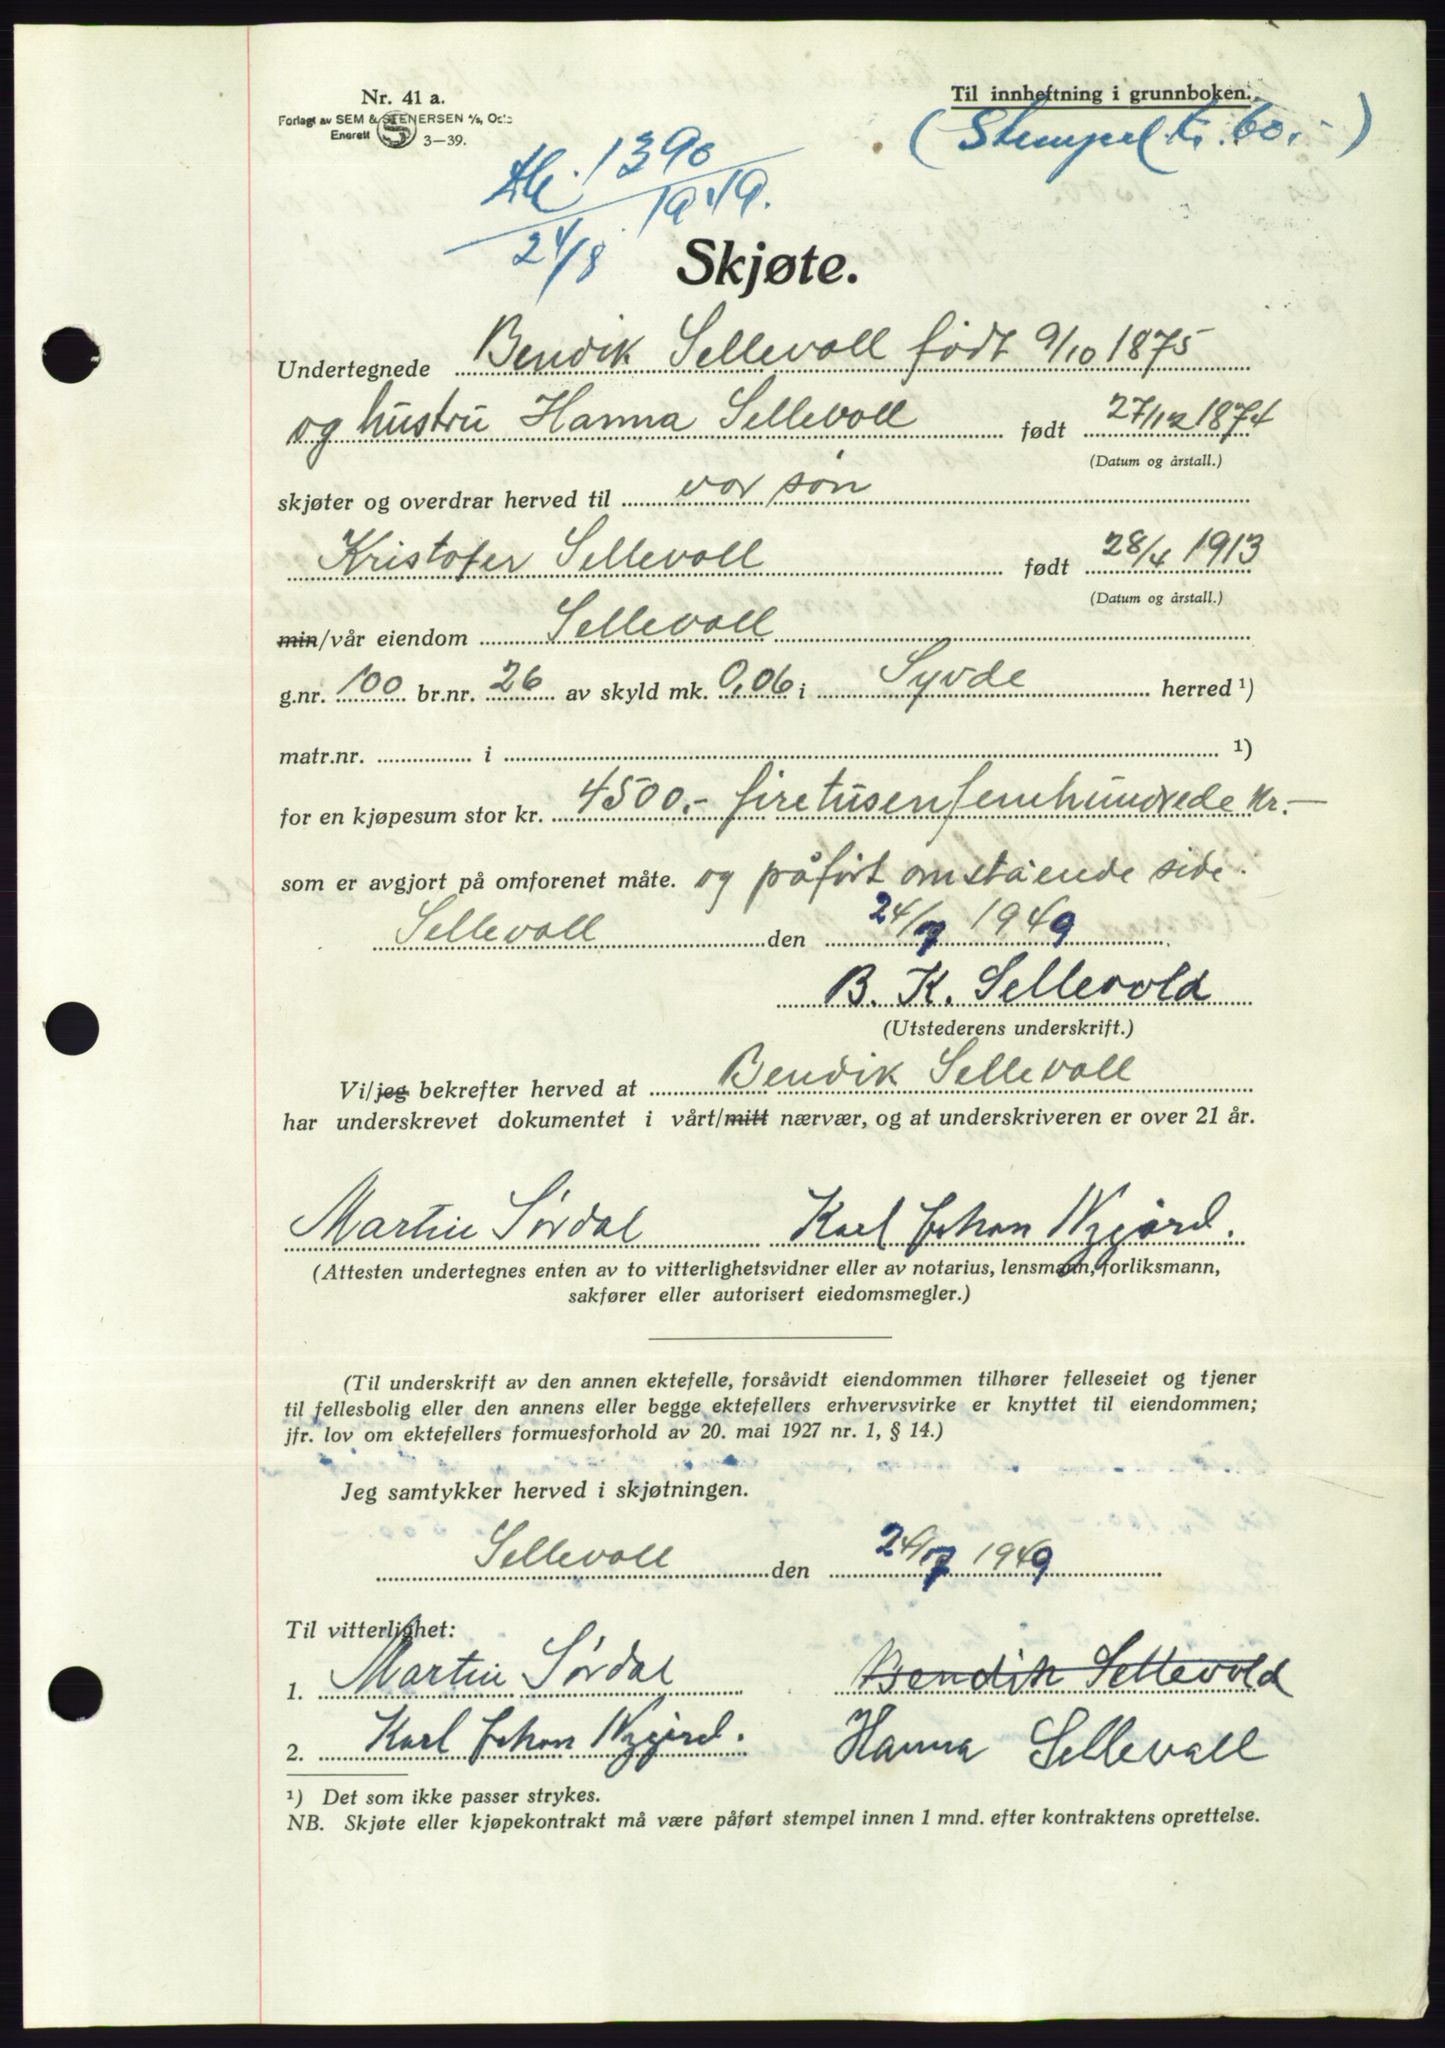 Nr. 41 a.
Til innheftning i grunnboken.
Forlagt av SEM & STENERSEN A/S, Oslo
Enerett S 3—39.
(Stempel kr. 60.-)
1390
1949.
24/8
Skjøte.
Undertegnede Bendik Sellevoll født 9/10 1875
og hustru Hanna Sellevoll født 27/12 1874
(Datum og årstall.)
skjøter og overdrar herved til vor søn
Kristofer Sellevoll født 28/4 1913
(Datum og årstall.)
min/vår eiendom Sellevoll
g.nr. 100 br.nr. 26 av skyld mk. 0,06 i Syvde herred ¹)
matr.nr. i ¹)
for en kjøpesum stor kr. 4500.- firetusenfemhundrede Kr.—
som er avgjort på omforenet måte. og påført omstående side.
Sellevoll den 24/7 1949
B. K. Sellevold
(Utstederens underskrift.)
Vi/jeg bekrefter herved at Bendik Sellevoll
har underskrevet dokumentet i vårt/mitt nærvær, og at underskriveren er over 21 år.
Martin Sørdal Karl Johan Nygård.
(Attesten undertegnes enten av to vitterlighetsvidner eller av notarius, lensmann, forliksmann,
sakfører eller autorisert eiedomsmegler.)
(Til underskrift av den annen ektefelle, forsåvidt eiendommen tilhører felleseiet og tjener
til fellesbolig eller den annens eller begge ektefellers erhvervsvirke er knyttet til eiendommen;
jfr. lov om ektefellers formuesforhold av 20. mai 1927 nr. 1, § 14.)
Jeg samtykker herved i skjøtningen.
Sellevoll den 24/7 1949
Til vitterlighet:
1. Martin Sørdal Bendik Sellevold
2. Karl Johan Nygård. Hanna Sellevall
¹) Det som ikke passer strykes.
NB. Skjøte eller kjøpekontrakt må være påført stempel innen 1 mnd. efter kontraktens oprettelse.